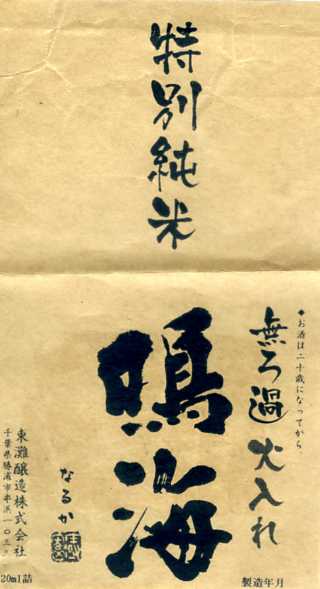 特別純米
◆お酒は二十歳になってから
無ろ過 火入れ
鳴海
なるか
東灘醸造株式会社
千葉県勝浦市串浜一〇三
20ml詰
製造年月